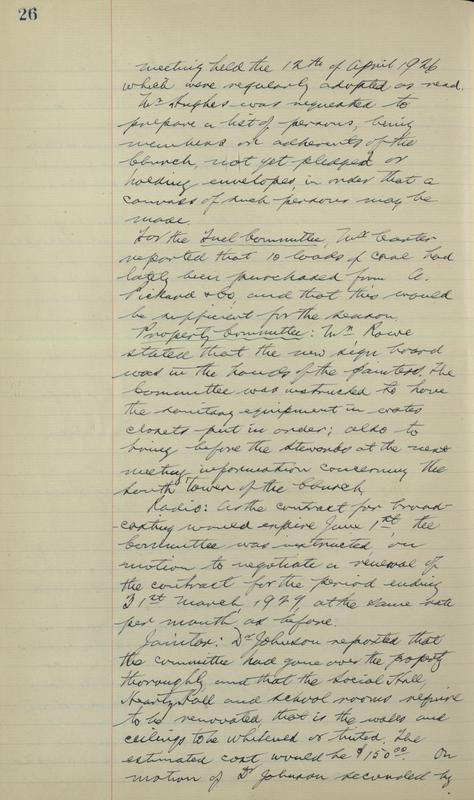 26
meeting held the 12th of April 1926
which were regularly adopted as read.
Mr Hughes was requested to
prepare a list of persons, being
members or adherents of the
Church, not yet pledged or
holding envelopes, in order that a
canvass of such persons may be
made.
For the Fuel Committee, Mr Carter
reported that 10 loads of coal had
lately been purchased from A.
Pickard & Co, and that this would
be sufficient for the season.
Property Committee: Mr Rowe
stated that the new sign board
was in the hands of the painters. The
Committee was instructed to have
the sanitary equipment in water
closets put in order; also to
bring before the stewards at the next
meeting information concerning the
South Tower of the Church
Radio: As the contract for broad-
casting would expire June 1st, the
Committee was instructed, on
motion to negotiate a renewal of
the contract for the period ending
31st March, 1927, at the same rate
per month as before.
Janitor: Dr Johnson reported that
the committee had gone over the property
thoroughly and that the Social Hall,
Hall and school rooms require
to be renovated, that is the walls and
ceilings to be whitened or tinted. The
estimated cost would be $150.00. On
motion of Dr Johnson seconded by